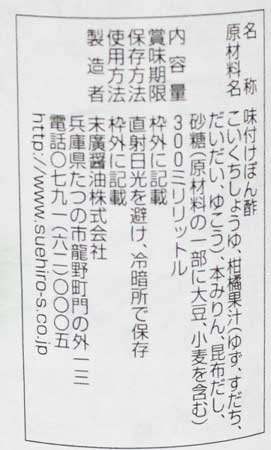 名称 味付けぽん酢
原材料名 こいくちしょうゆ、柑橘果汁(ゆず、すだち、
だいだい、ゆこう)、本みりん、昆布だし、
砂糖(原材料の一部に大豆、小麦を含む)
内容量 300ミリリットル
賞味期限 枠外に記載
保存方法 直射日光を避け、冷暗所で保存
使用方法 枠外に記載
製造者 末廣醤油株式会社
兵庫県たつの市龍野町門の外一三
電話〇七九一(六二)〇〇〇五
http://www.suehiro-s.co.jp